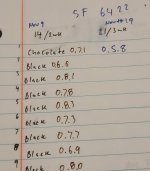 SF 6422
Nov 9 Nov 19
14/2wk 21/3wk
1 Chocolate 0.7.1 0.5.8
2 Black 0.6.6
3 Black 0.8.1
4 Black 0.7.8
5 Black 0.8.3
6 Black 0.7.3
7 Black 0.7.7
8 Black 0.6.9
9 Black 0.8.0